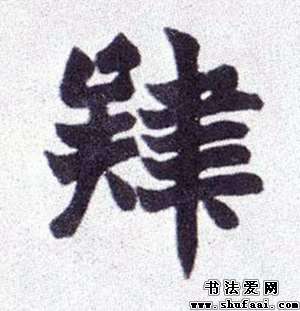 肄
书法爱网
www.shufaai.com